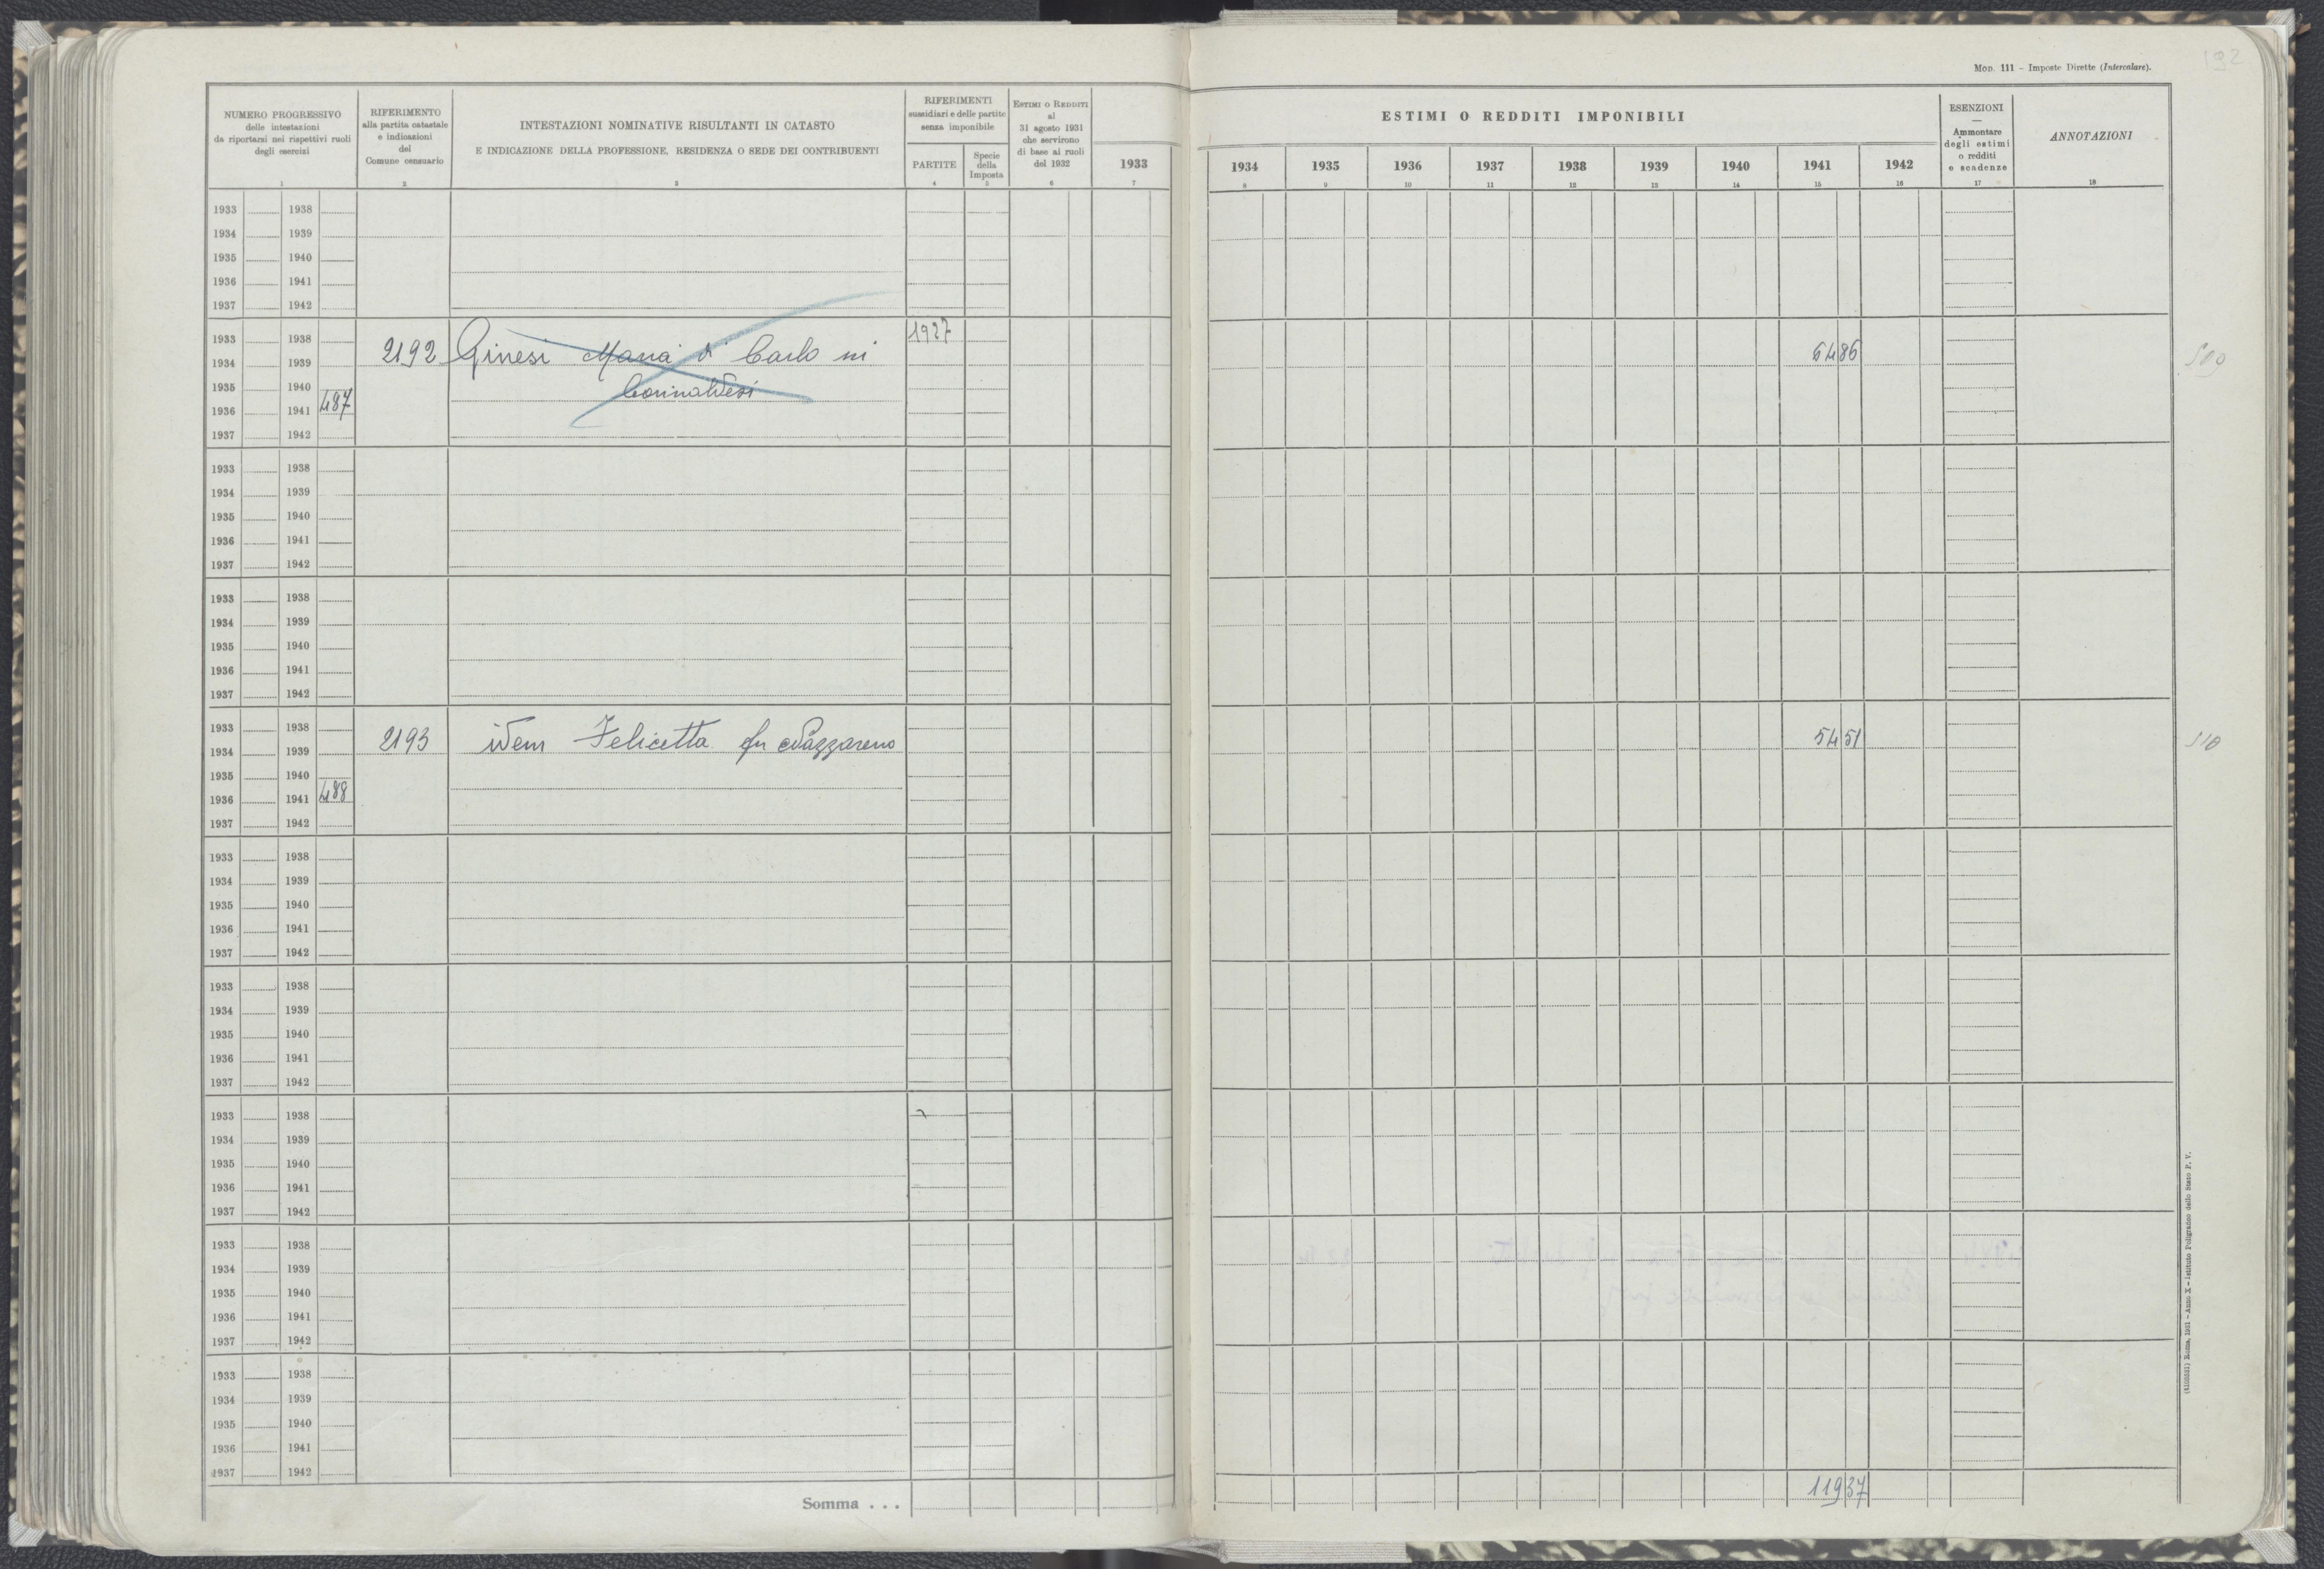 192
MOD. 111 - Imposte Dirette (Intercalare).
NUMERO PROGRESSIVO
delle intestazioni
da riportarsi nei rispettivi ruoli
degli esercizi
1
RIFERIMENTO
alla partita catastale
e indicazioni
del
Comune censuario
2
INTESTAZIONI NOMINATIVE RISULTANTI IN CATASTO
E INDICAZIONE DELLA PROFESSIONE, RESIDENZA O SEDE DEI CONTRIBUENTI
3
RIFERIMENTI
sussidiari e delle partite
senza imponibile
PARTITE
4
Specie
della
Imposta
5
ESTIMI O REDDITI
al
31 agosto 1931
che servirono
di base ai ruoli
del 1932
6
1933
7
ESTIMI O REDDITI IMPONIBILI
1934 1935 1936 1937 1938 1939 1940 1941 1942
8 9 10 11 12 13 14 15 16
ESENZIONI
—
Ammontare
degli estimi
o redditi
e scadenze
17
ANNOTAZIONI
18
1933 1938
1934 1939
1935 1940
1936 1941
1937 1942
1933 1938 1927
1934 1939 2192 Ginesi Maria di Carlo in 6486
1935 1940 Corinaldesi
1936 1941 487
1937 1942
1933 1938
1934 1939
1935 1940
1936 1941
1937 1942
1933 1938
1934 1939
1935 1940
1936 1941
1937 1942
1933 1938
1934 1939 2193 idem Felicetta fu Nazzareno 5451 510
1935 1940
1936 1941 488
1937 1942
1933 1938
1934 1939
1935 1940
1936 1941
1937 1942
1933 1938
1934 1939
1935 1940
1936 1941
1937 1942
1933 1938
1934 1939
1935 1940
1936 1941
1937 1942
1933 1938
1934 1939
1935 1940
1936 1941
1937 1942
1933 1938
1934 1939
1935 1940
1936 1941
1937 1942
Somma . . . 11937
(4103351) Roma, 1931 - Anno X - Istituto Poligrafico dello Stato P. V.